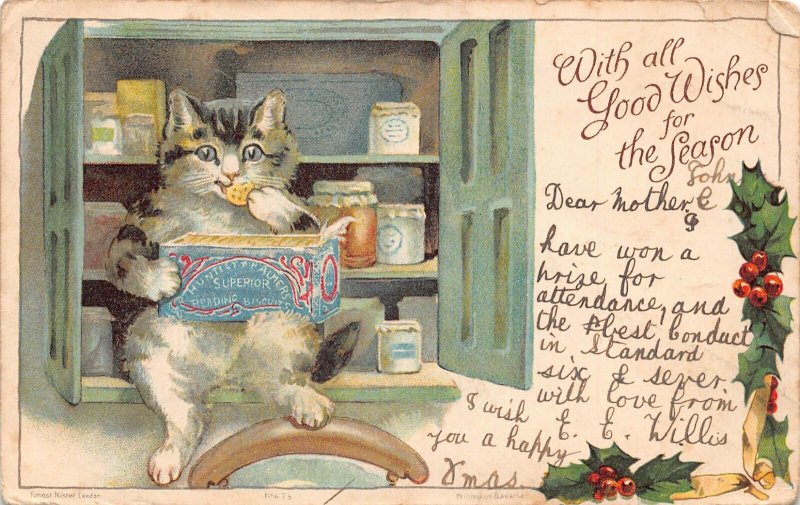 With all
Good Wishes
for
the Season
John
Dear Mother,
I
have won a
prize for
attendance, and
the best Conduct
in Standard
six & seven.
with love from
E. E. Willis
I wish
you a happy
Xmas
HUNTLEY & PALMERS
SUPERIOR
READING BISCUITS
Ernest Nister, London.
No 675
Printed in Bavaria